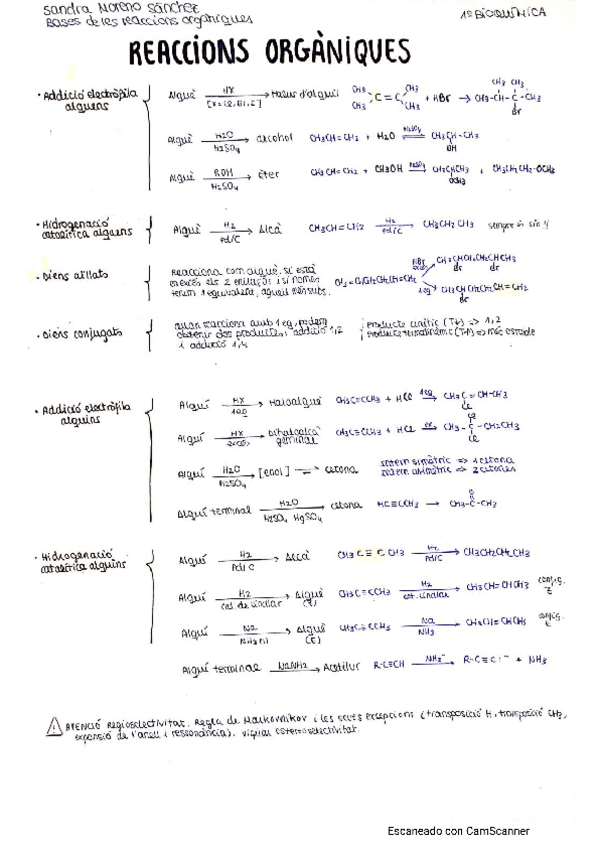 Sandra Moreno Sánchez
Bases de les reaccions orgàniques
1º BIOQUÍMICA
REACCIONS ORGÀNIQUES
· Addició electròfila alquens
Alquè HX [X=Cl, Br, I] → Halur d'alquil
+ HBr →
Alquè H2O H2SO4 → alcohol CH3CH=CH2 + H2O H2SO4 CH3CH-CH3 OH
Alquè ROH H2SO4 → èter CH3CH=CH2 + CH3OH H2SO4 CH3CHCH3 OCH3 , CH3CH2CH2-OCH3
· Hidrogenació catalítica alquens
Alquè H2 Pd/C → Alcà CH3CH=CH2 H2 Pd/C → CH3CH2CH3
· Diens aïllats
Reacciona com alquè. Si està
en excés els 2 enllaços i si només
tenim 1 equivalent, aquell més subs.
· Diens conjugats
quan reacciona amb 1 eq, podem
obtenir dos productes, addició 1,2
i addició 1,4
producte cinètic (T↓) => 1,2
producte termodinàmic (T↑) => més estable
· Addició electròfila alquins
Alquí HX 1eq → Haloalquè CH3C≡CCH3 + HCl 1eq → CH3C=CH-CH3 Cl
Alquí HX excés → Dihaloalcà geminal CH3C≡CCH3 + HCl ex → CH3-C-CH2CH3 Cl Cl
Alquí H2O H2SO4 → [enol] ⇌ cetona
sistem simètric => 1 cetona
sistem asimètric => 2 cetones
Alquí terminal H2O H2SO4 HgSO4 → cetona HC≡CCH3 → CH3-C-CH3 O
· Hidrogenació catalítica alquins
Alquí H2 Pd/C → Alcà CH3C≡CCH3 H2 Pd/C → CH3CH2CH2CH3
Alquí H2 cat. de Lindlar → Alquè (Z) CH3C≡CCH3 H2 cat. Lindlar → CH3CH=CHCH3 config. Z
Alquí Na NH3(l) → Alquè (E) CH3C≡CCH3 Na NH3 → CH3CH=CHCH3 config. E
Alquí terminal NaNH2 → Acetilur R-C≡CH NH2⁻ → R-C≡C:⁻ + NH3
ATENCIÓ Regioselectivitat. Regla de Markovnikov i les seves excepcions (transposició H, transposició CH3,
expansió de l'anell i ressonància). Vigilar estereoselectivitat.
Escaneado con CamScanner